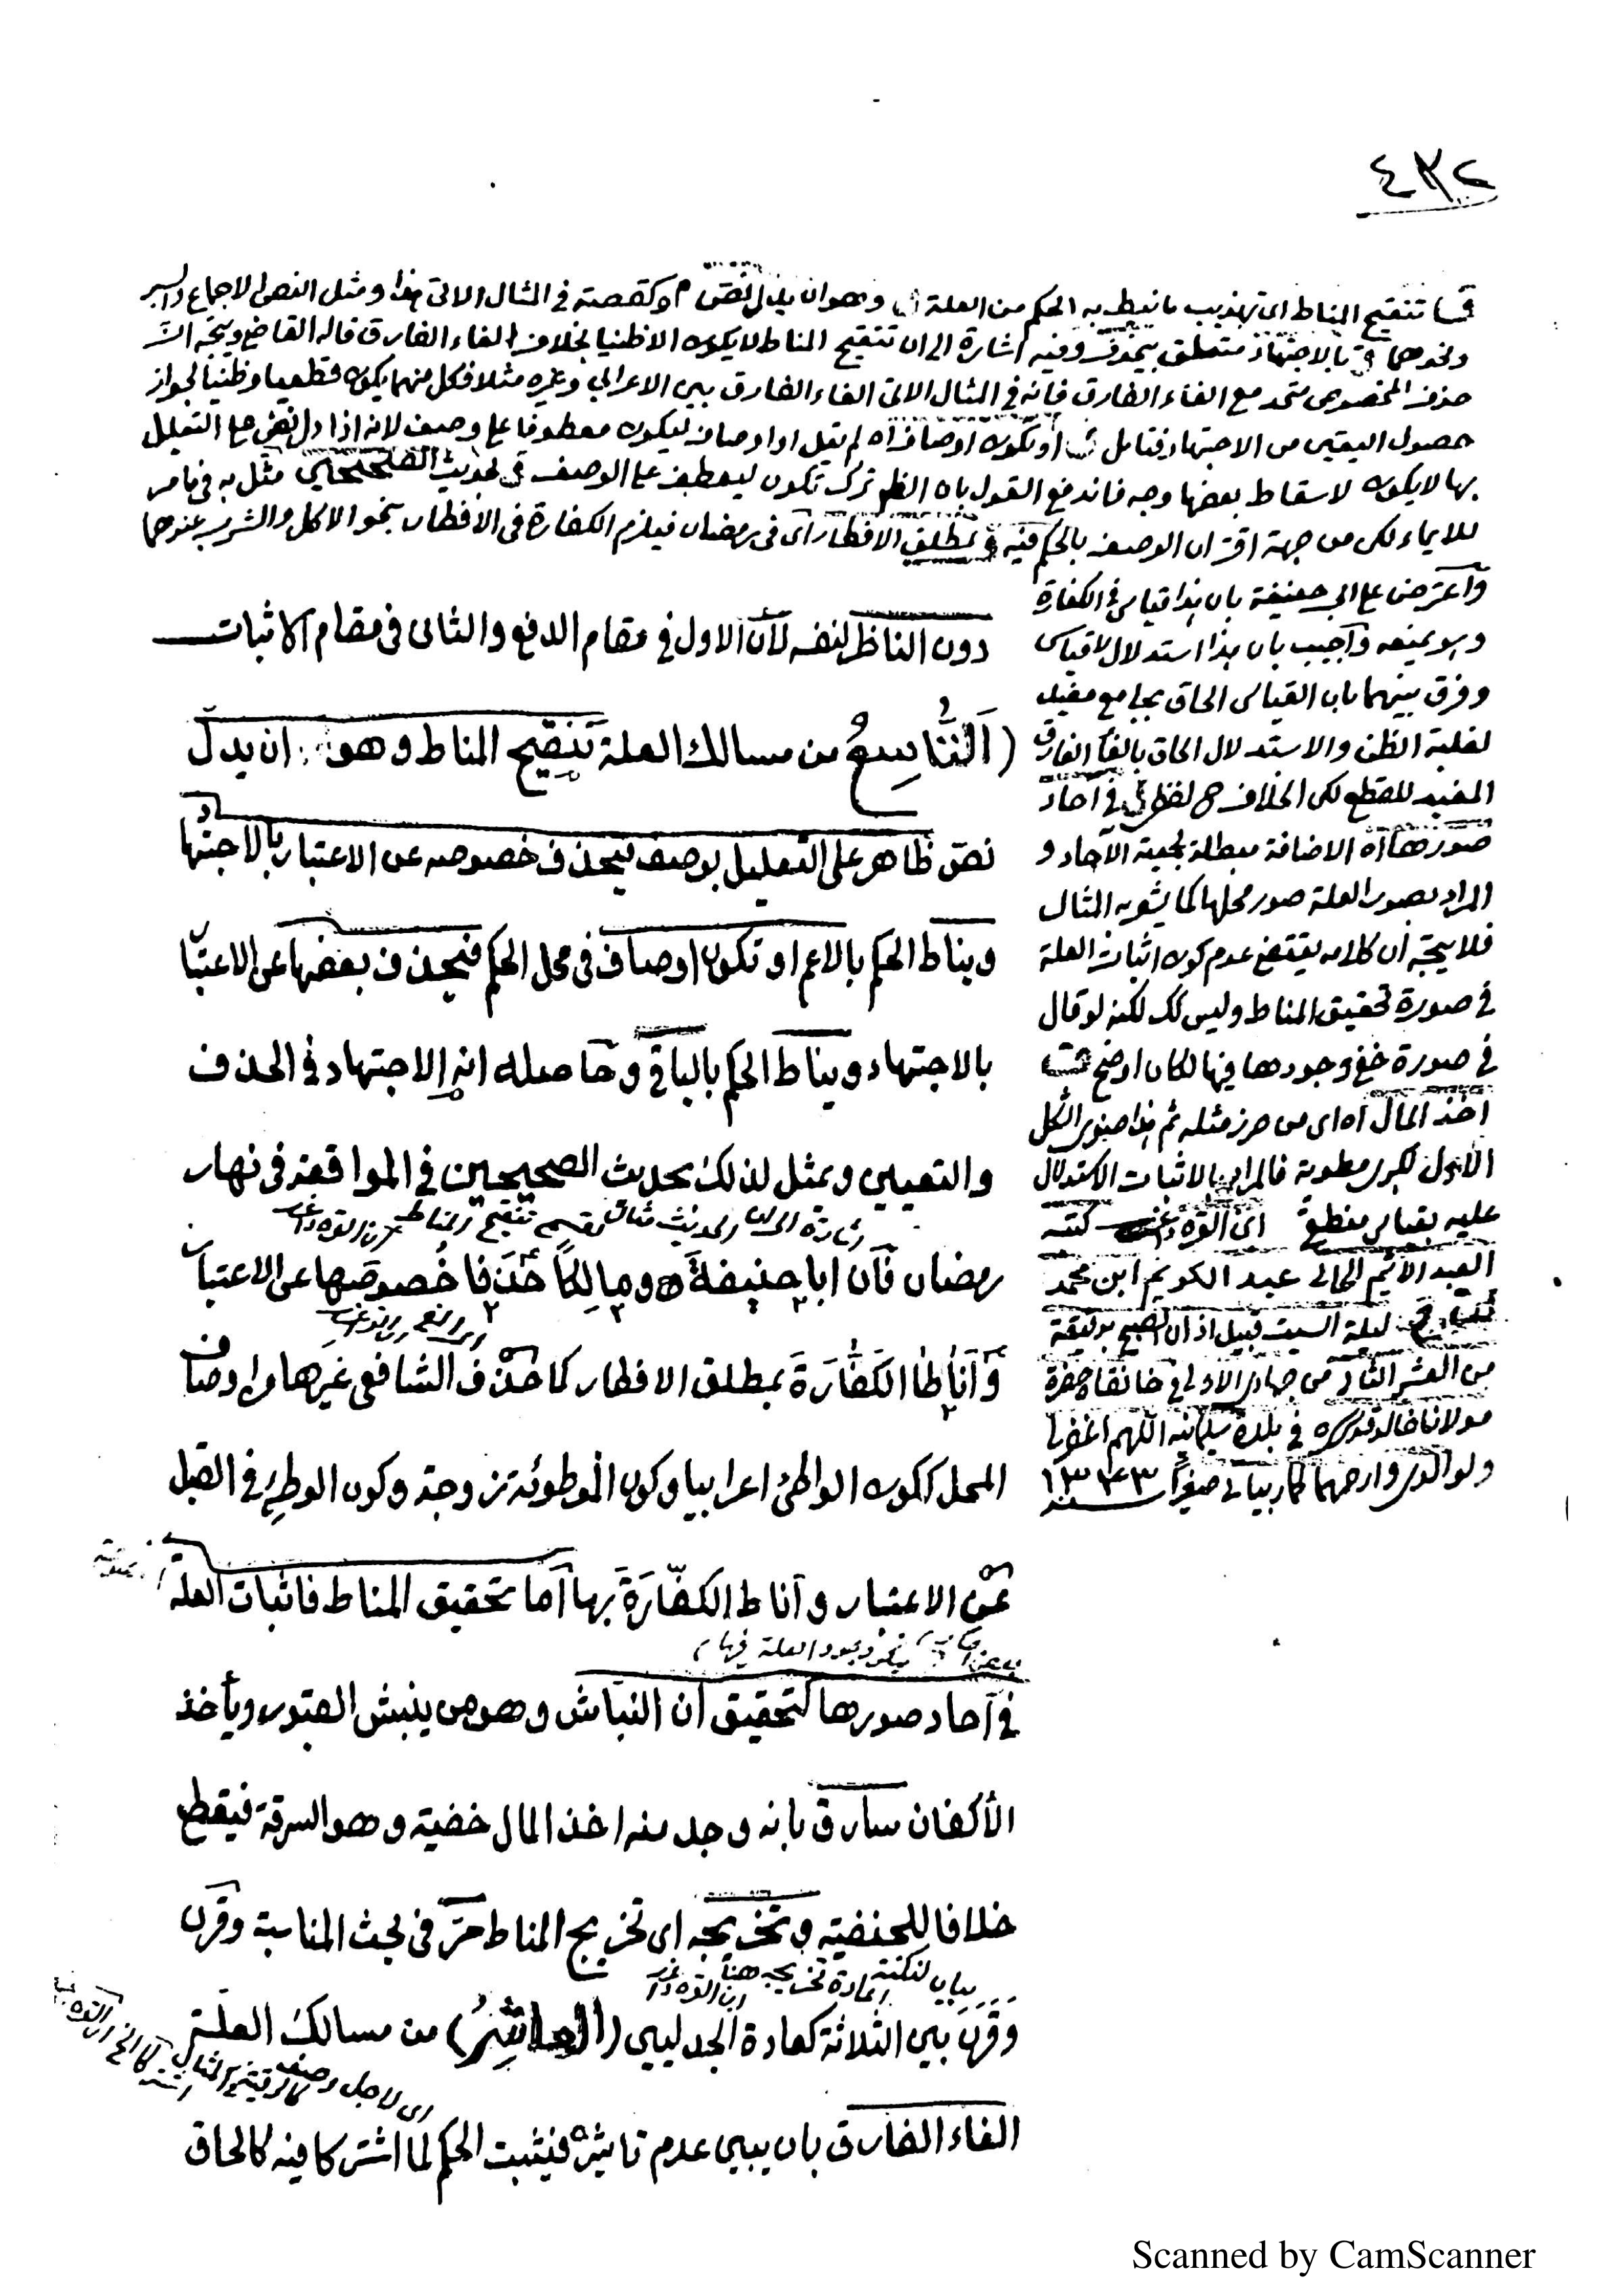 ٤٣٢
تنقيح المناط اى تهذيب ما نيط به الحكم من العلة وهو ان يدل نص كقصته فى المثال الاتى هذا ومثل النص الاجماع
ونحوهما بالاجتهاد متعلق بيحذف وفيه اشارة الى ان تنقيح المناط لا يكون الا ظنيا بخلاف الغاء الفارق قاله القاضى ويتجه
حذف الخصوص متحد مع الغاء الفارق فانه فى المثال الاتى الغاء الفارق بين الاعرابى وغيره مثلا فكل منهما يكون قطعيا وظنيا لجواز
حصول اليقين من الاجتهاد فتامل او تكون اوصاف اه لم يقل او اوصاف ليكون معطوفا على وصف لانه اذا دل نص على التعليل
بها لا يكون لاسقاط بعضها وجه فاندفع القول بان الظ ترك تكون ليعطف على الوصف لحديث الصحيحين مثل به فيما مر
للايماء لكن من جهة اقتران الوصف بالحكم فيه بمطلق الافطار اى فى رمضان فيلزم الكفارة فى الافطار بنحو الاكل والشرب عندهما
واعترض على ابى حنيفة بان هذا قياس فى الكفارة
وهو يمنعه واجيب بان هذا استدلال لا قياس
وفرق بينهما بان القياس الحاق بجامع مفيد
لغلبة الظن والاستدلال الحاق بالغاء الفارق
المفيد للقطع لكن الخلاف ح لفظى فى آحاد
صورها اه الاضافة مبطلة لجمعية الآحاد و
المراد بصور العلة صور محلها كما يشعر به المثال
فلا يتجه ان كلامه يقتضى عدم كون اثبات العلة
فى صورة تحقيق المناط وليس كك لكنه لو قال
فى صورة خفى وجودها فيها لكان اوضح
اخذ المال اه اى من حرز مثله ثم هذا صغرى الشكل
الاول لكبرى مطوية فالمراد بالاثبات الاستدلال
عليه بقياس منطقى كتبه
العبد الأثيم الجانى عبد الكريم ابن محمد
ليلة السبت قبيل اذان الصبح بدقيقة
من العشر الثانى من جمادى الاولى فى خانقاه حضرة
مولانا خالد قدس سره فى بلدة سليمانية اللهم اغفر لى
ولوالدى وارحمهما كما ربيانى صغيرا سنة ١٣٤٣
دون الناظر لنفسه لأن الاول فى مقام الدفع والثانى فى مقام الاثبات
(اَلتَّاسِعُ من مسالك العلة تنقيح المناط وهو ان يدل
نص ظاهر على التعليل بوصف فيحذف خصوصه عن الاعتبار بالاجتهاد
ويناط الحكم بالاعم او تكون اوصاف فى محل الحكم فيحذف بعضها عن الاعتبار
بالاجتهاد ويناط الحكم بالباقى وحاصله انه الاجتهاد فى الحذف
والتعيين ويمثل لذلك بحديث الصحيحين فى المواقعة فى نهار
اشارة الى ان الحديث مثال لقسمى تنقيح المناط
رمضان فان ابا حنيفة ومالكا حذفا خصوصها عن الاعتبار
وَأناطا الكَفَّارَةَ بمطلق الافطار كما حذف الشافعى غيرها من اوصاف
المحل ككون الواطئ اعرابيا وكون الموطوئة زوجة وكون الوطئ فى القبل
عن الاعتبار وأناط الكفّارَةَ بها أما تحقيق المناط فاثبات العلة
وجود العلة فيها
فى آحاد صورها كتحقيق أن النباش وهو من ينبش القبور ويأخذ
الأكفان سارق بانه وجد منه اخذ المال خفية وهو السرقة فيقطع
خلافا للحنفية وتخريجه اى تخريج المناط مرّ فى بحث المناسبة وقرن
بيان لنكتة اعادة تخريجه هنا
وَقَرَنَ بين الثلاثة كعادة الجدليين (العاشِرُ) من مسالك العلة
الغاء الفارق بان يبين عدم تاثيره فيثبت الحكم لما اشتركا فيه كالحاق
Scanned by CamScanner